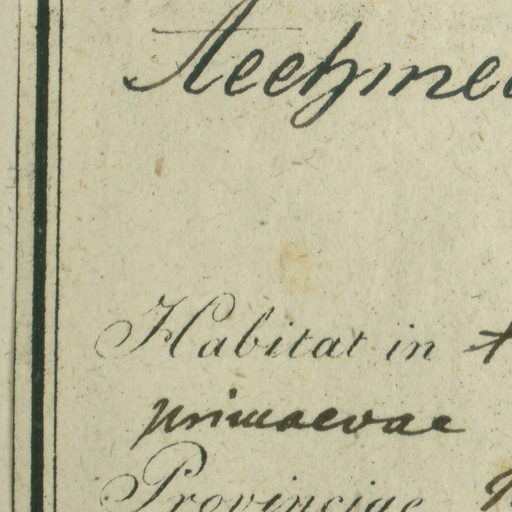 Aechmea
Habitat in
primaevae
Provinciae